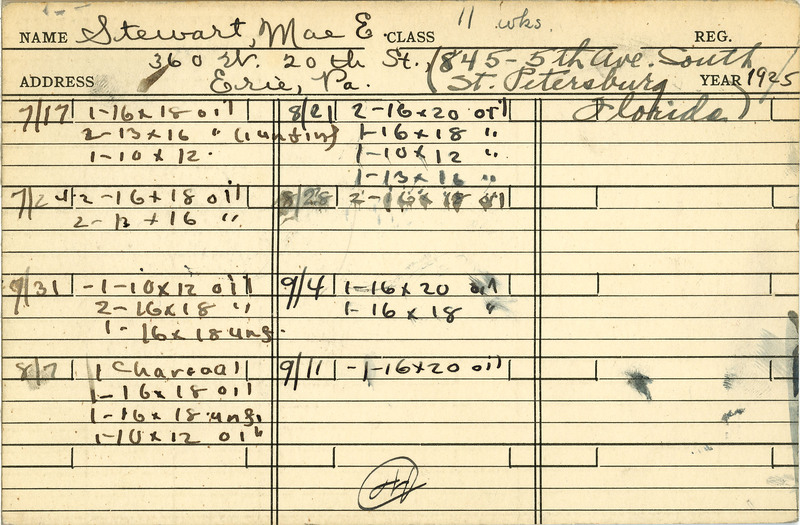 NAME Stewart, Mae E. CLASS 11 wks. REG.
360 W. 20th St., (845-5th Ave. South
ADDRESS Erie, Pa. St. Petersburg YEAR 1925
Florida)
7/17 1-16x18 oil
2-13x16 " (1 unfin)
1-10x12.
7/24 2-16x18 oil
2-13x16 "
7/31 -1-10x12 oil
2-16x18 "
1-16x18 unf.
8/7 1 Charcoal
1-16x18 oil
1-16x18 unf.
1-10x12 oil
8/21 2-16x20 oil
1-16x18 "
1-10x12 "
1-13x16 "
8/28 2-16x18 oil
9/4 1-16x20 oil
1-16x18 "
9/11 -1-16x20 oil